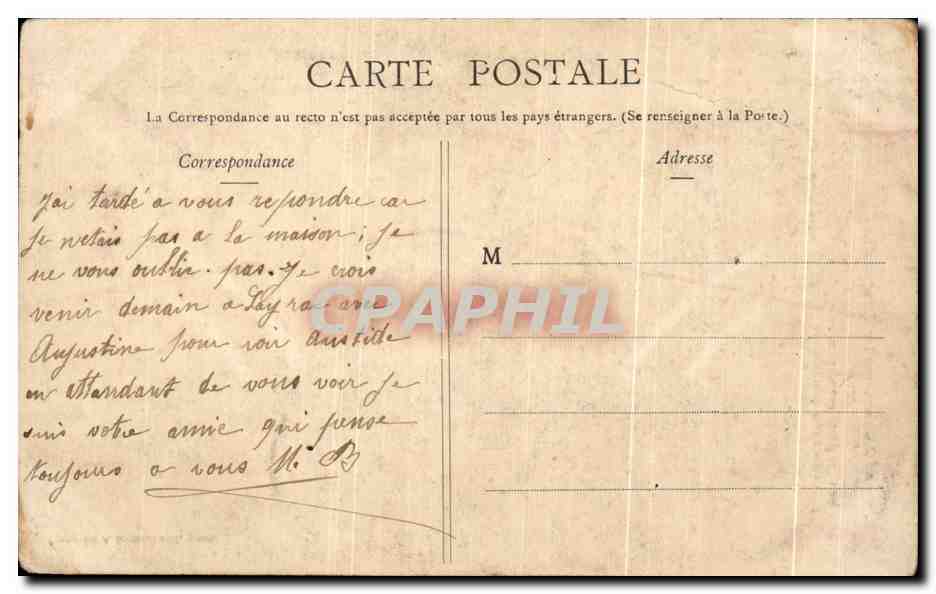 CARTE POSTALE
La Correspondance au recto n'est pas acceptée par tous les pays étrangers. (Se renseigner à la Poste.)
Correspondance
J'ai tardé a vous repondre car
je netais pas a la maison; je
ne vous oublie pas. Je crois
venir demain a Layrac avec
Augustine pour voir
en attendant de vous voir je
suis votre amie qui pense
toujours a vous M. B
Adresse
M
CPAPHIL